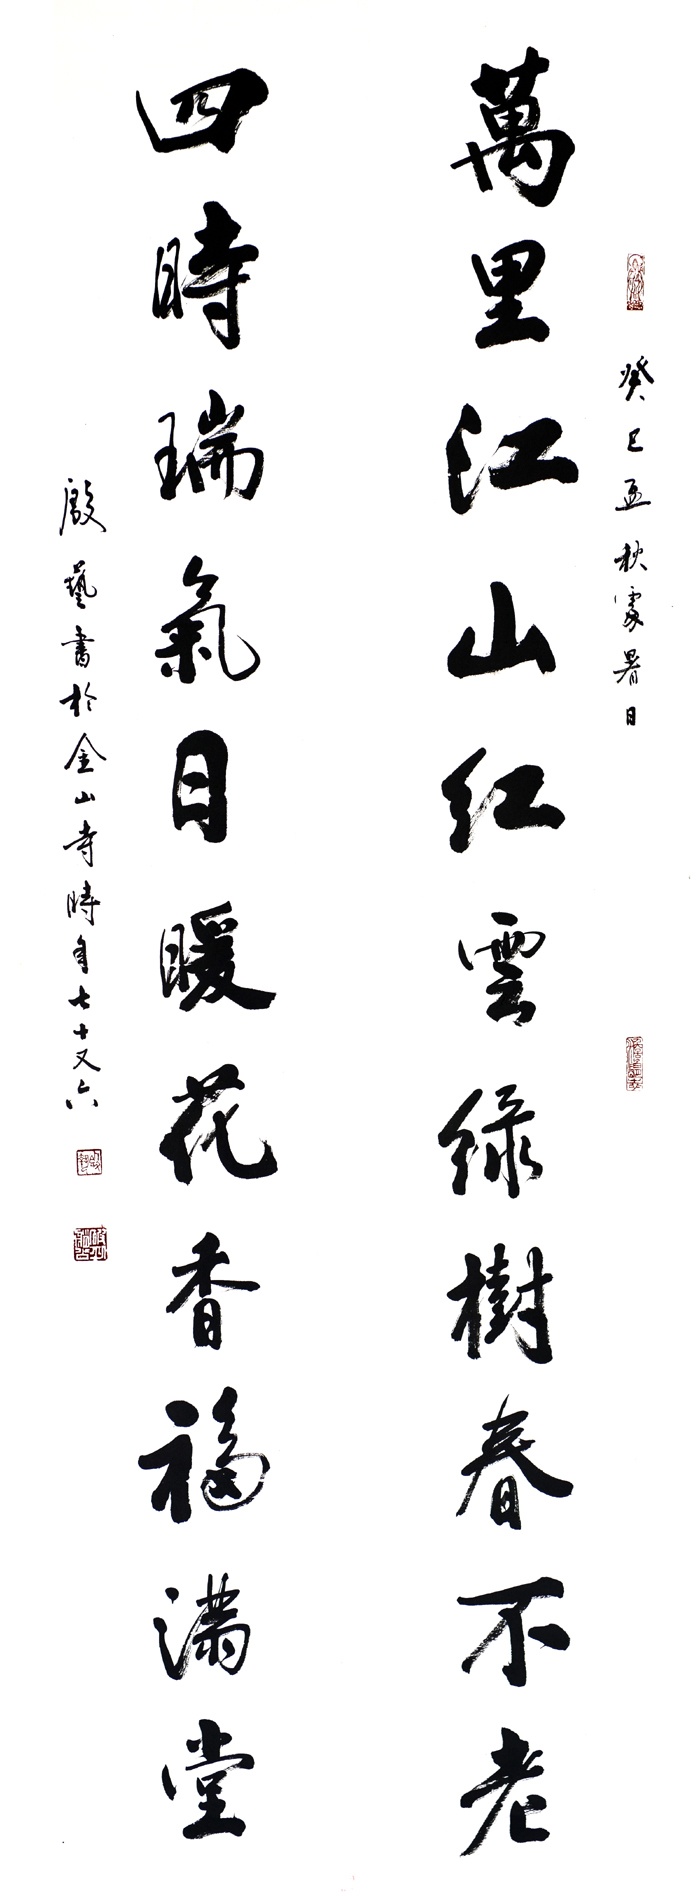 癸巳孟秋處暑日
萬里江山紅雲綠樹春不老
四時瑞氣日暖花香福滿堂
殷藝書於金山寺時年七十又六